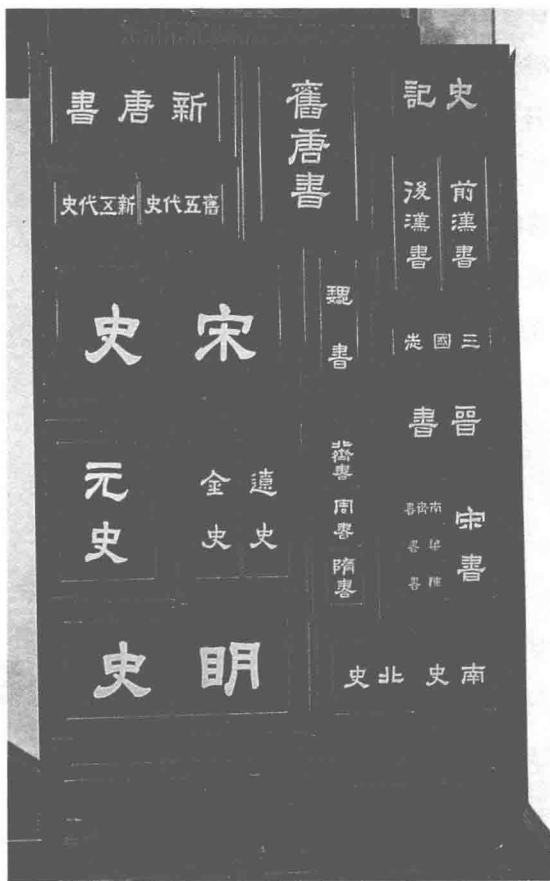 史記
前漢書
後漢書
三國志
晉書
宋書
南齊書
梁書
陳書
南史 北史
舊唐書
魏書
北齊書
周書
隋書
新唐書
舊五代史
新五代史
宋史
遼史
金史
元史
明史